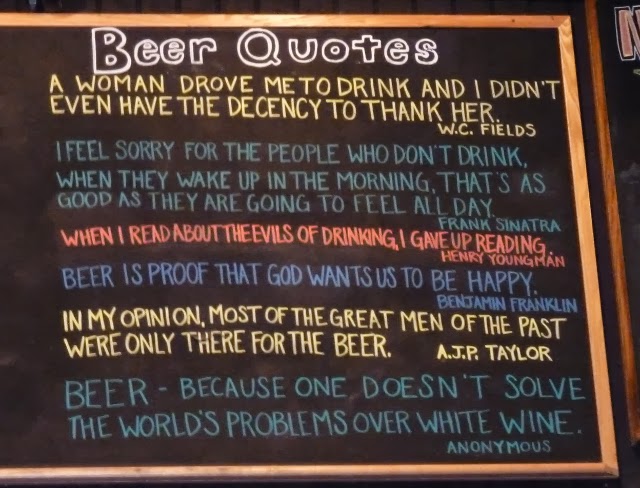 Beer Quotes
A WOMAN DROVE ME TO DRINK AND I DIDN'T
EVEN HAVE THE DECENCY TO THANK HER.
W.C. FIELDS
I FEEL SORRY FOR THE PEOPLE WHO DON'T DRINK,
WHEN THEY WAKE UP IN THE MORNING, THAT'S AS
GOOD AS THEY ARE GOING TO FEEL ALL DAY.
FRANK SINATRA
WHEN I READ ABOUT THE EVILS OF DRINKING, I GAVE UP READING.
HENRY YOUNGMAN
BEER IS PROOF THAT GOD WANTS US TO BE HAPPY.
BENJAMIN FRANKLIN
IN MY OPINION, MOST OF THE GREAT MEN OF THE PAST
WERE ONLY THERE FOR THE BEER.
A.J.P. TAYLOR
BEER - BECAUSE ONE DOESN'T SOLVE
THE WORLD'S PROBLEMS OVER WHITE WINE.
ANONYMOUS